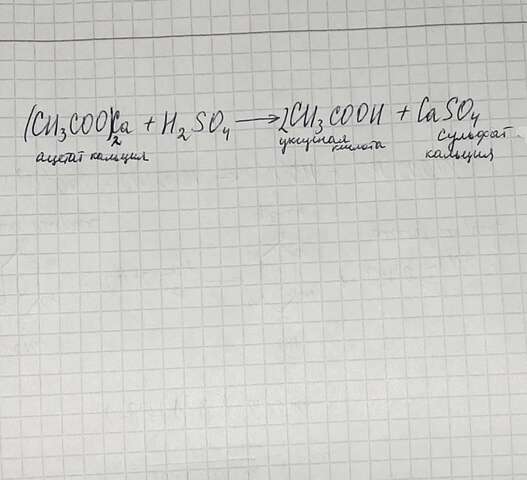 (CH₃COO)₂Ca + H₂SO₄ ⟶ 2CH₃COOH + CaSO₄
ацетат кальция уксусная кислота сульфат кальция